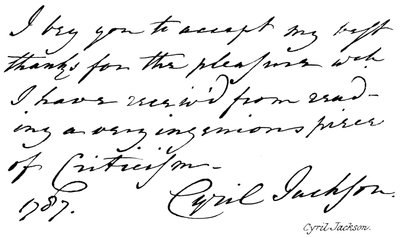 I beg you to accept my best
thanks for the pleasure wch
I have receiv'd from read-
ing a very ingenious piece
of Criticism-
1787. Cyril Jackson.
Cyril Jackson.